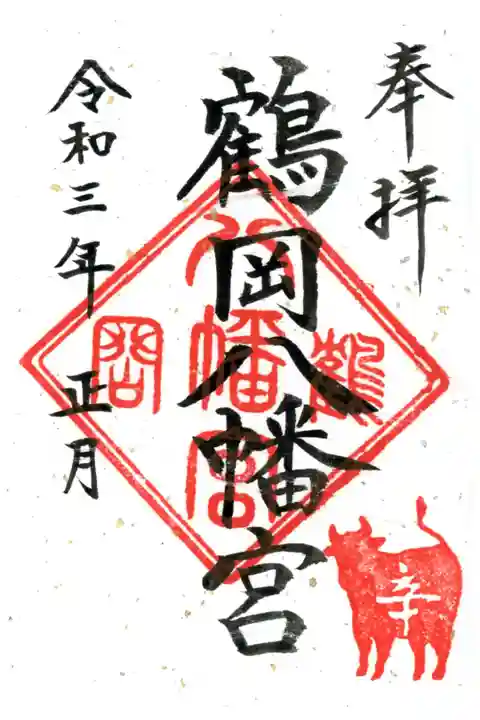 奉拝
鶴岡八幡宮
鶴
八幡宮
岡
令和三年 正月
辛